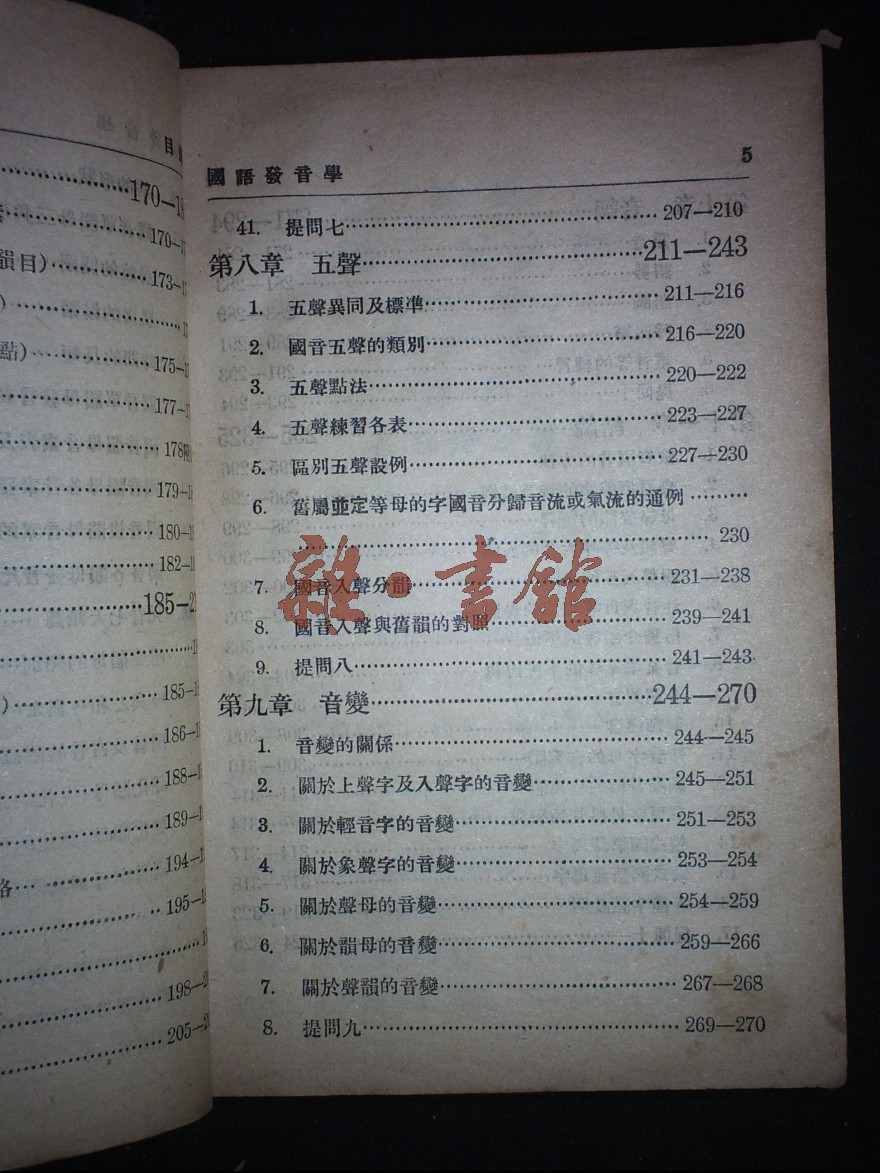 目
170—18
170—1
韻目)
173—1
點)
175—1
177—1
178附
179—1
180—1
182—1
185—2
185—1
186—1
188—1
189—1
194—1
195—1
198—2
205—2
國語發音學 5
41. 提問七 207—210
第八章 五聲 211—243
1. 五聲異同及標準 211—216
2. 國音五聲的類別 216—220
3. 五聲點法 220—222
4. 五聲練習各表 223—227
5. 區別五聲設例 227—230
6. 舊屬並定等母的字國音分歸音流或氣流的通例
230
7. 國音入聲分韻 231—238
8. 國音入聲與舊韻的對照 239—241
9. 提問八 241—243
第九章 音變 244—270
1. 音變的關係 244—245
2. 關於上聲字及入聲字的音變 245—251
3. 關於輕音字的音變 251—253
4. 關於象聲字的音變 253—254
5. 關於聲母的音變 254—259
6. 關於韻母的音變 259—266
7. 關於聲韻的音變 267—268
8. 提問九 269—270
雜·書館